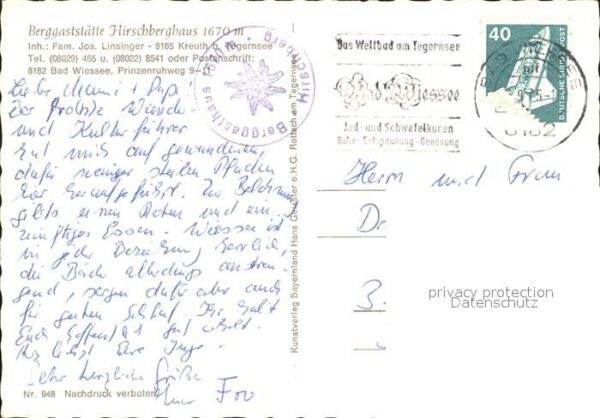 Berggaststätte Hirschberghaus 1670 m
Inh.: Fam. Jos. Linsinger - 8185 Kreuth b. Tegernsee
Tel. (08029) 465 u. (08022) 8541 oder Postanschrift:
8182 Bad Wiessee, Prinzenruhweg 9-11
Liebe Mumi + Papi!
Der Probste
und Kulturführer
hat mich auf gewundenen
dafür weniger steilen Pfaden
hier heraufgeführt. Zur Belohnung
gibts einen Roten und ein
zünftiges Essen. Wiessee ist
in jeder Beziehung herrlich,
die Bäder allerdings anstren-
gend, sorgen dafür aber auch
für guten Schlaf. Ihr habt
Euch hoffentlich gut erholt.
Eure Inge.
Sehr herzliche Grüße
Nr. 948 Nachdruck verboten
Berggasthaus Hirschberg 1670 m
Kunstverlag Bayernland Hans Gessler o.H.G. Rottach am Tegernsee
Das Weltbad am Tegernsee
Bad Wiessee
Jod- und Schwefelkuren
Ruhe Entspannung Genesung
BAD WIESSEE
8182
40
DEUTSCHE BUNDESPOST
Herrn und Frau
Dr
3.
privacy protection
Datenschutz